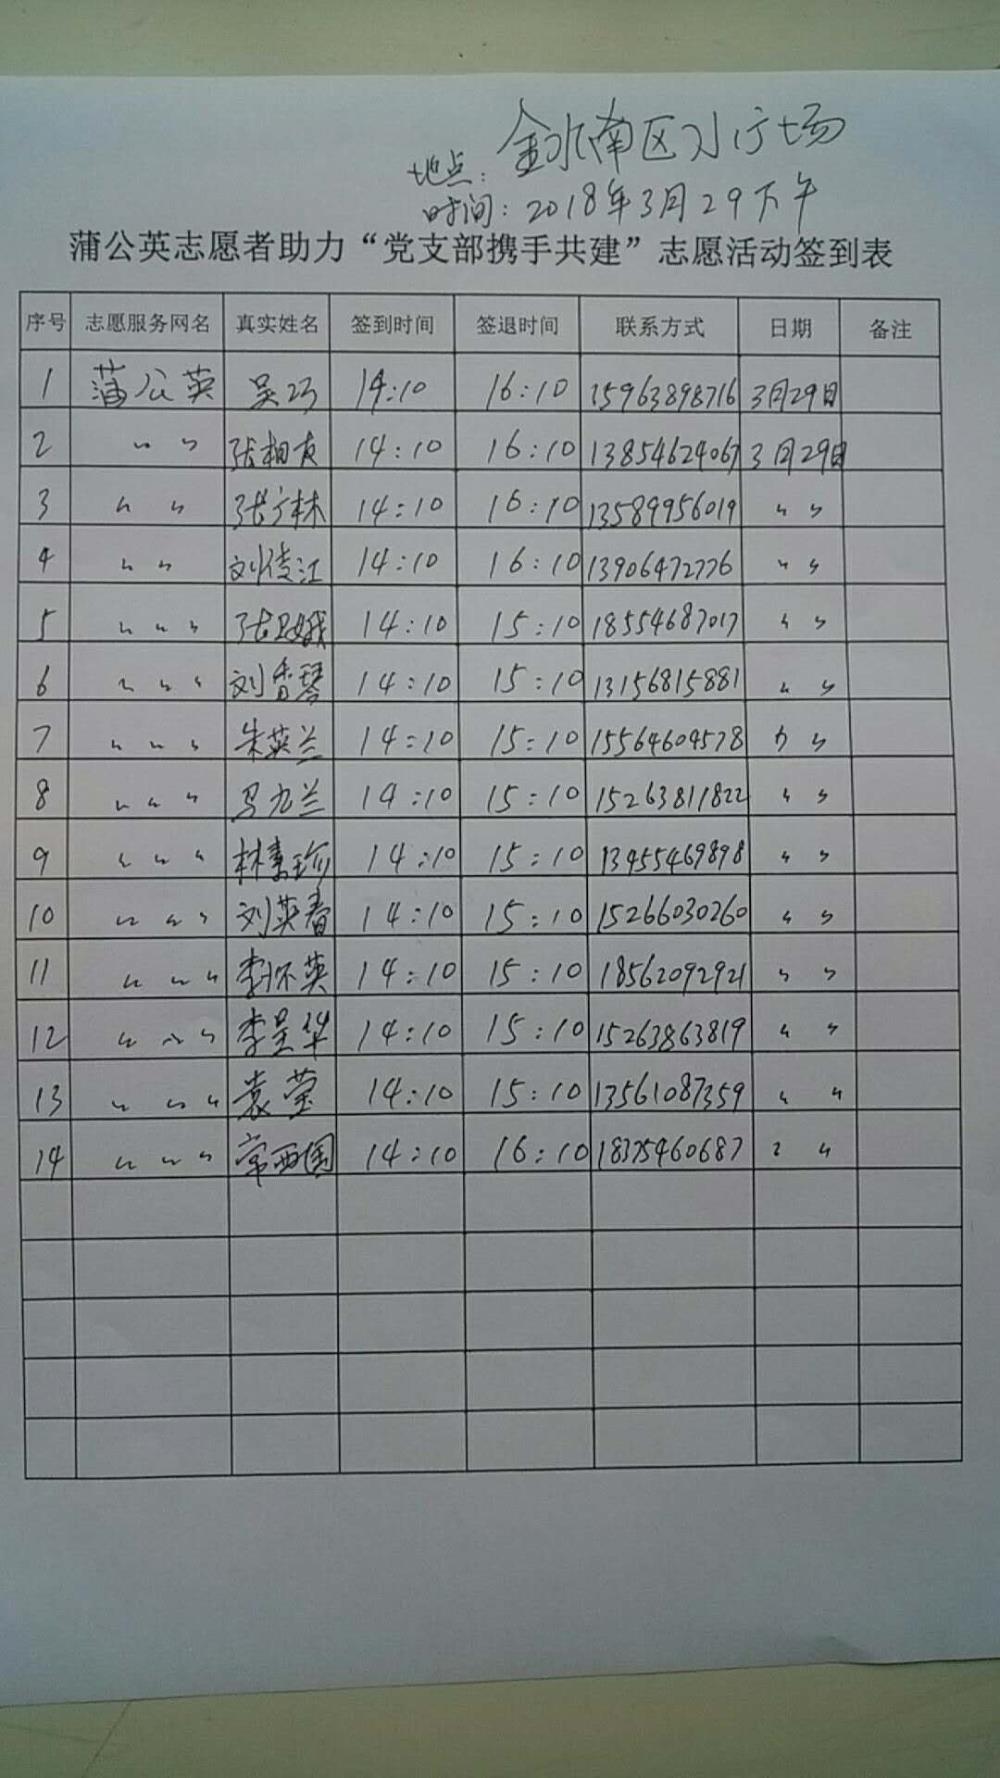 地点: 金水南区小广场
时间: 2018年3月29下午
蒲公英志愿者助力“党支部携手共建”志愿活动签到表
序号 志愿服务网名 真实姓名 签到时间 签退时间 联系方式 日期 备注
1 蒲公英 吴巧 14:10 16:10 15963898716 3月29日
2 〃 〃 张相友 14:10 16:10 13854624067 3月29日
3 〃 〃 张广林 14:10 16:10 13589956019 〃 〃
4 〃 〃 刘俊江 14:10 16:10 13906472776 〃 〃
5 〃 〃 〃 张 娥 14:10 15:10 18554687017 〃 〃
6 〃 〃 〃 刘香琴 14:10 15:10 13156815881 〃 〃
7 〃 〃 〃 朱英兰 14:10 15:10 15564604578 〃 〃
8 〃 〃 〃 马九兰 14:10 15:10 15263811822 〃 〃
9 〃 〃 〃 林素珍 14:10 15:10 13455469898 〃 〃
10 〃 〃 〃 刘英春 14:10 15:10 15266030260 〃 〃
11 〃 〃 〃 李怀英 14:10 15:10 18562092921 〃 〃
12 〃 〃 〃 李呈华 14:10 15:10 15263863819 〃 〃
13 〃 〃 〃 袁莹 14:10 15:10 13561087359 〃 〃
14 〃 〃 〃 常西国 14:10 16:10 〃 〃